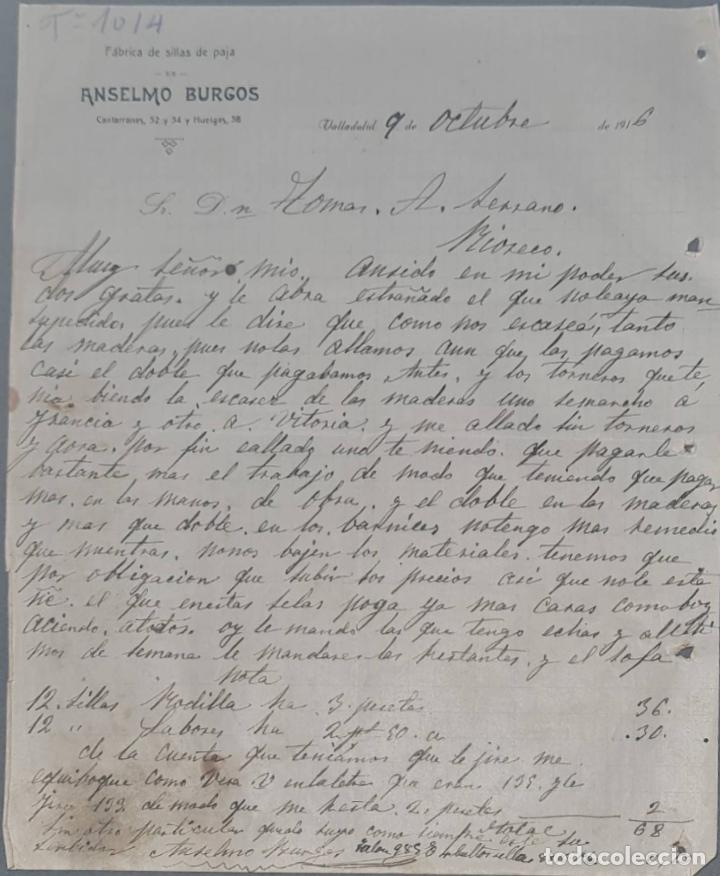 Tª 1014
Fábrica de sillas de paja
DE
ANSELMO BURGOS
Cantarranas, 32 y 34 y Huelgas, 38
Valladolid 9 de Octubre de 1916
Sr. Dn Tomas. A. Serrano.
Rioseco.
Muy señor mio. ansido en mi poder sus
dos gratas. y le abra estrañado el que noleaya man
supedido, pues le dire que como nos escasea, tanto
las maderas, pues nolas allamos aun que las pagamos
casi el doble que pagabamos antes, y los torneros que te
nia biendo la escases de las maderas uno semarcho á
Francia y otro. a. Vitoria. y me allado sin torneros
y aora. por fin eallado uno te niendo. que pagarle
bastante mas el trabajo de modo que teniendo que pagar
mas. en las manos. de obra. y el doble en las maderas
y mas que doble. en los. barnices notengo mas remedio
que mientras. nonos bajen los materiales. tenemos que
por obligacion que subir los precios asi que note estra
ñe. el que enestas selas poga ya mas caras como boy
aciendo. atodos. oy le mando las que tengo echas y alulti
mos de semana le mandare las restantes. y el sofa
Nota
12. sillas Rodilla ha 3. pesetas 36.
12 " Labores ha 2 pts 50. c 30.
de la cuenta que teniamos que le jire me
equiboque como Vera V enlaletra que eran 135. y le
jire 133 de modo que me resta. 2. pesetas 2
68
sin otro particular quedo suyo como siempre su
Anselmo Burgos talon 9858
todocoleccion